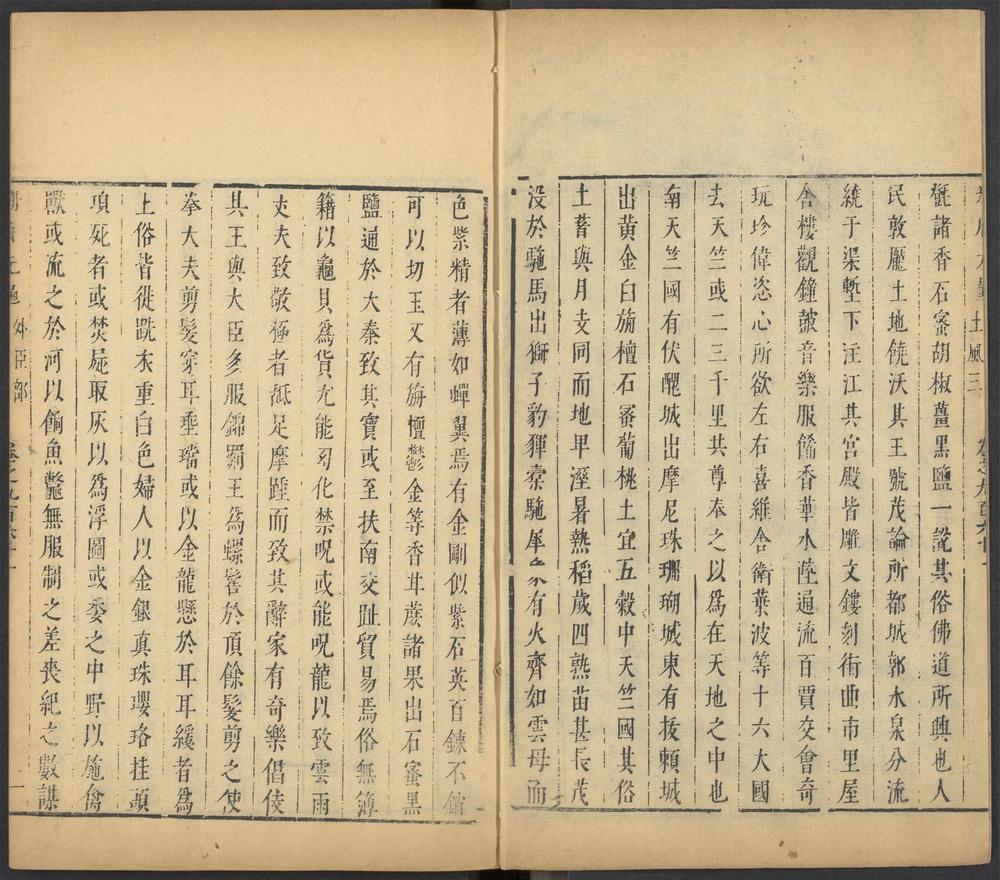 土風三
毾諸香石蜜胡椒薑黑鹽一說其俗佛道所興也人
民敦龐土地饒沃其王號茂論所都城郭水泉分流
繞于渠塹下注江其宮殿皆雕文鏤刻街曲市里屋
舍樓觀鐘皷音樂服餙香華水陸通流百賈交會奇
玩珍偉恣心所欲左右喜維舍衛葉波等十六大國
去天竺或二三千里共尊奉之以爲在天地之中也
南天竺國有伏醜城出摩尼珠珊瑚城東有拔頼城
出黃金白旃檀石蜜葡桃土宜五穀中天竺國其俗
土著與月支同而地卑溼暑熱稻歲四熟苗甚長茂
没於駞馬出獅子豹貚橐駞犀象有火齊如雲母而
色紫精者薄如蟬翼焉有金剛似紫石英百鍊不銷
可以切玉又有旃檀鬱金等香甘蔗諸果出石蜜黑
鹽通於大秦致其寶或至扶南交趾貿易焉俗無簿
籍以龜貝爲貨尤能幻化禁呪或能呪龍以致雲雨
丈夫致敬極者䑛足摩踵而致其辭家有奇樂倡伎
其王與大臣多服錦罽王爲螺髻於頂餘髮剪之使
拳大夫剪髮穿耳埀璫或以金龍懸於耳耳緩者爲
上俗皆徙跣衣重白色婦人以金銀真珠瓔珞挂頭
項死者或焚屍取灰以爲浮圖或委之中野以施禽
獸或流之於河以餇魚鼈無服制之差喪紀之數謀
外臣部